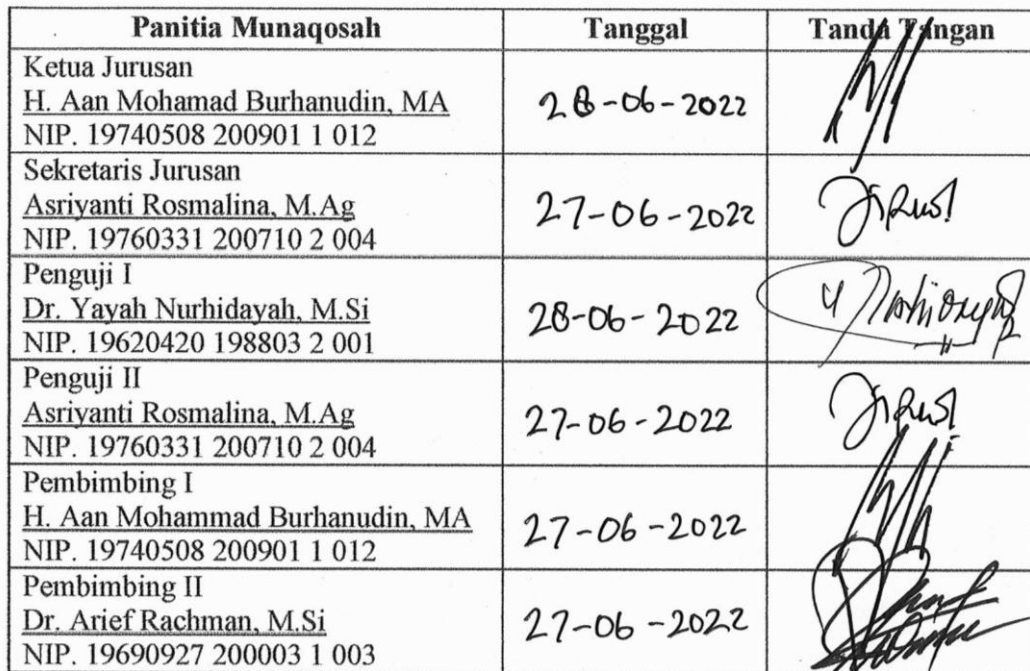 Panitia Munaqosah Tanggal Tanda Tangan
Ketua Jurusan
H. Aan Mohamad Burhanudin, MA
NIP. 19740508 200901 1 012
28-06-2022
Sekretaris Jurusan
Asriyanti Rosmalina, M.Ag
NIP. 19760331 200710 2 004
27-06-2022
Penguji I
Dr. Yayah Nurhidayah, M.Si
NIP. 19620420 198803 2 001
28-06-2022
Penguji II
Asriyanti Rosmalina, M.Ag
NIP. 19760331 200710 2 004
27-06-2022
Pembimbing I
H. Aan Mohammad Burhanudin, MA
NIP. 19740508 200901 1 012
27-06-2022
Pembimbing II
Dr. Arief Rachman, M.Si
NIP. 19690927 200003 1 003
27-06-2022